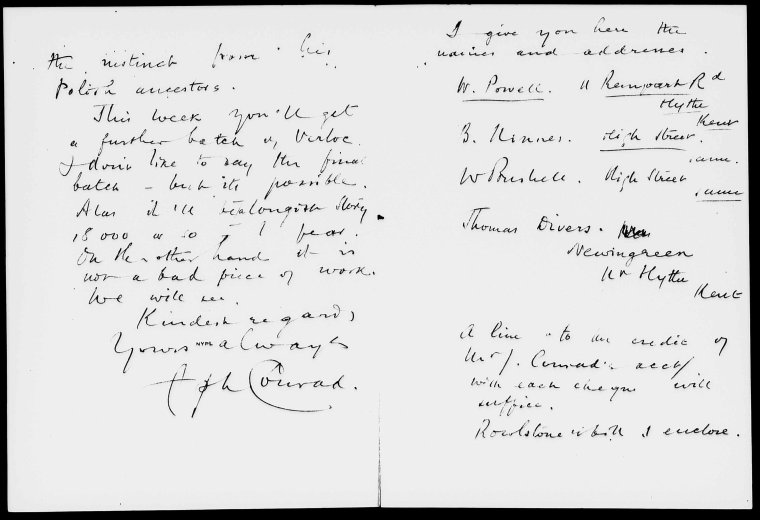 the instinct from his
Polish ancestors.
This week you'll get
a further batch of Verloc.
I don't like to say the final
batch – but its possible.
Alas it'll be a longish story
18000 or so – I fear.
On the other hand it is
not a bad piece of work.
We will see.
Kindest regards
Yours always
NYPL
Jph Conrad.
I give you here the
names and addresses.
W. Powell. 11 Rampart Rd
Hythe
Kent
B. Kinnes. High Street.
same.
W High Street
same
Thomas Divers.
Newingreen
Nr Hythe
Kent
A line to the credit of
Mr J. Conrad's acct/
with each cheque will
suffice.
bill I enclose.